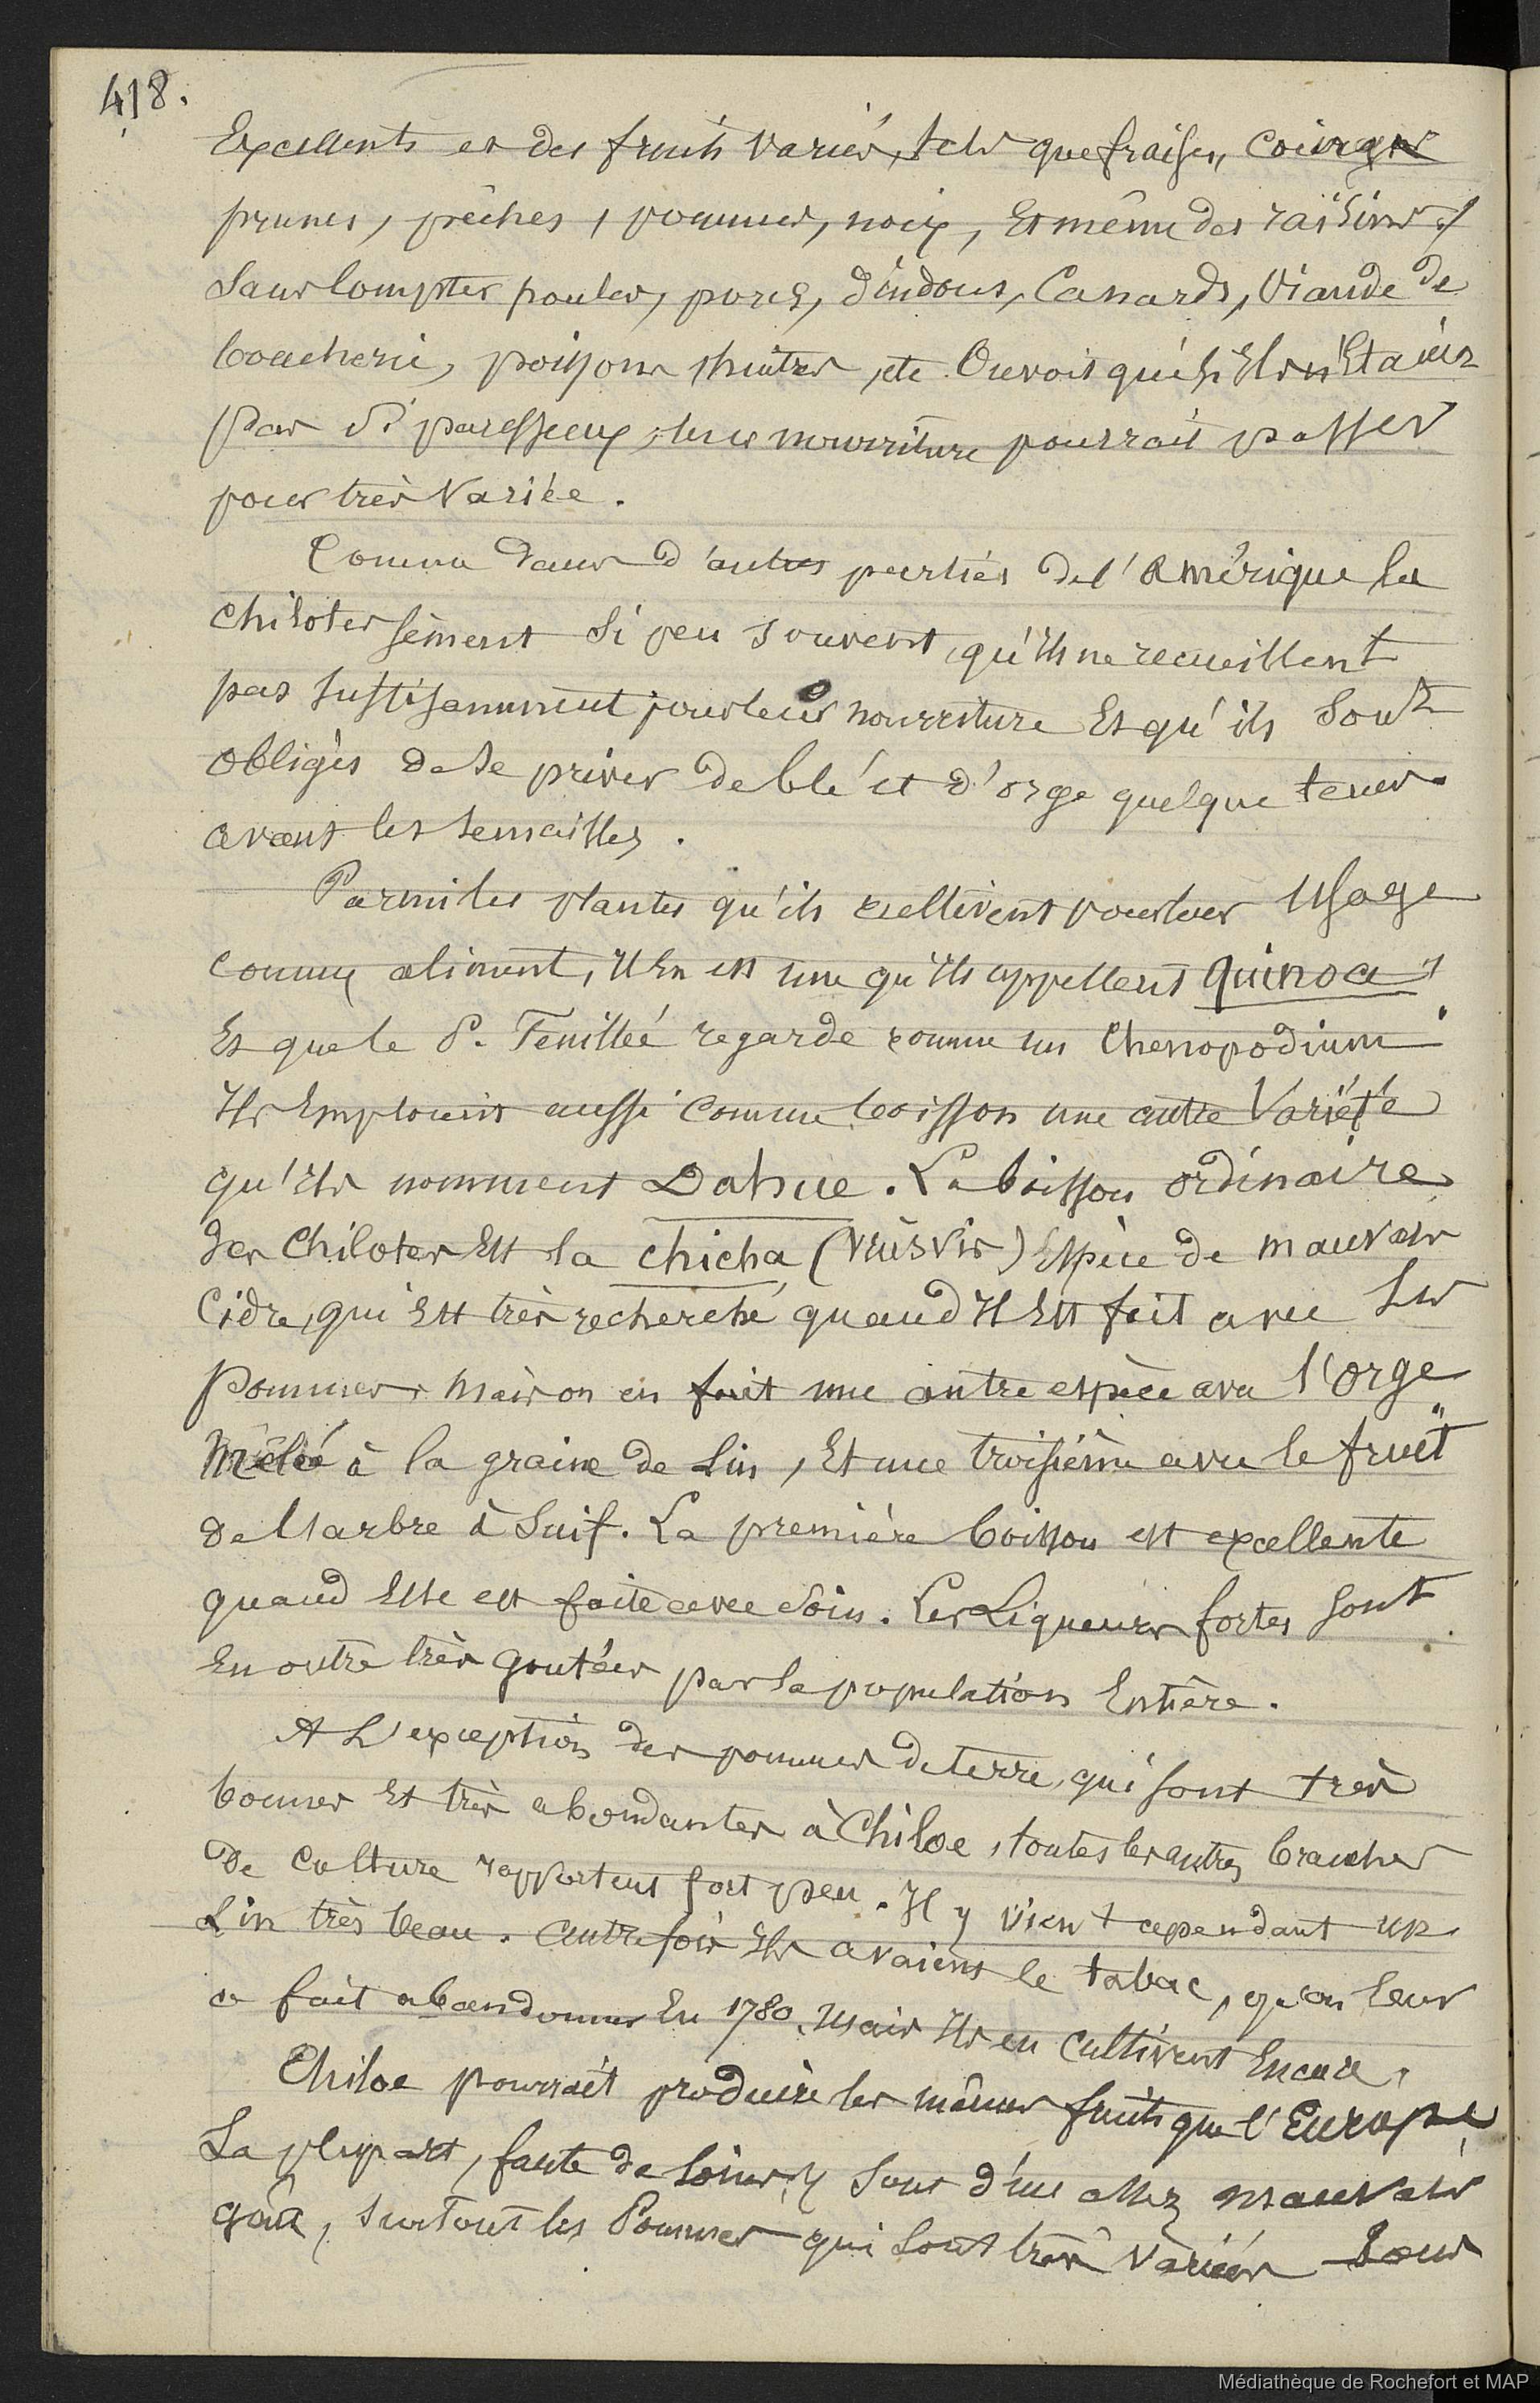 418.
Excellents et des fruits variés, tels que fraises, Coings
prunes, pêches, pommes, noix, Et même des raisins,
Sans Compter poules, porcs, dindons, Canards, Viande de
boucherie, poissons, huitres, etc. On voit que s'Ils n'Etaient
pas si paresseux, leur nourriture pourrait passer
pour très Variée.
Comme dans d'autres parties de l'Amérique les
Chilotes sèment si peu souvent, qu'Ils ne recueillent
pas suffisamment pour leur nourriture Et qu'ils sont
Obligés de se priver de blé et d'orge quelque tems
avant les semailles.
Parmi les plantes qu'ils cultivent pour leur Usage
comme aliment, Il En est une qu'Ils appellent quinoa,
Et que le P. Feuillée regarde comme un Chenopodium.
Ils Emploient aussi comme boisson une autre Variété
qu'Ils nomment Dahue. La boisson ordinaire
des Chilotes Est la chicha Espèce de mauvais
Cidre, qui Est très recherché quand Il Est fait avec les
pommes. Mais on en fait une autre espèce avec l'Orge
Mêlée à la graine de Lin, Et une troisième avec le fruit
de l'arbre à Suif. La première boisson est excellente
quand Elle est faite avec soin. Les Liqueurs fortes sont
En outre très goutées par la population Entière.
A L'exception des pommes de terre, qui sont très
bonnes Et très abondantes à Chiloe, toutes les autres branches
de Culture rapportent fort peu. Il y vient cependant un
Lin très beau. Autrefois Ils avaient le tabac, qu'on leur
a fait abandonner En 1780. Mais Ils en Cultivent Encore.
Chiloe pourrait produire les mêmes fruits que l'Europe
La plupart, faute de soins, y sont d'un assez mauvais
goût, surtout les Pommes qui sont très variées Pour
Médiathèque de Rochefort et MAP